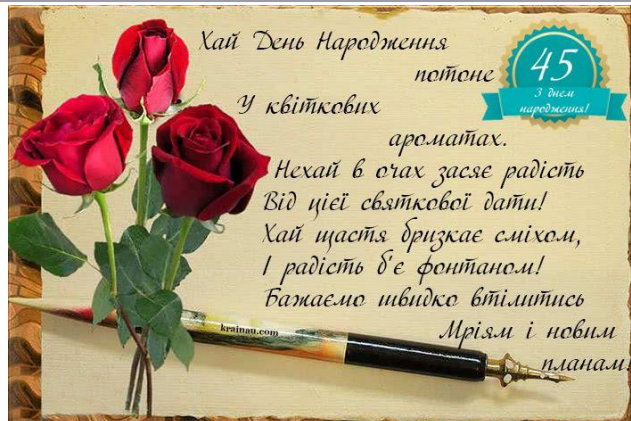 Хай День Народження
потоне
У квіткових
ароматах.
Нехай в очах засяє радість
Від цієї святкової дати!
Хай щастя бризкає сміхом,
І радість б'є фонтаном!
Бажаємо швидко втілитись
Мріям і новим
планам!
45
З днем
народження!
krainau.com